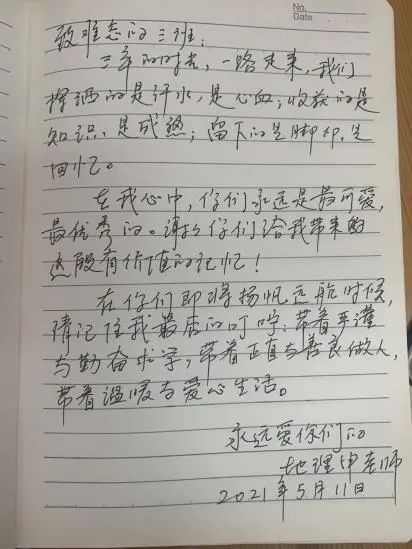 No.
Date
致难忘的三班:
三年的时光,一路走来,我们
挥洒的是汗水,是心血;收获的是
知识,是成熟;留下的是脚印,是
回忆。
在我心中,你们永远是最可爱,
最优秀的。谢谢你们给我带来的
这段有价值的记忆!
在你们即将扬帆远航时候,
请记住我最后的叮咛:带着严谨
与勤奋求学,带着正直与善良做人,
带着温暖与爱心生活。
永远爱你们的
地理申老师
2021年5月11日